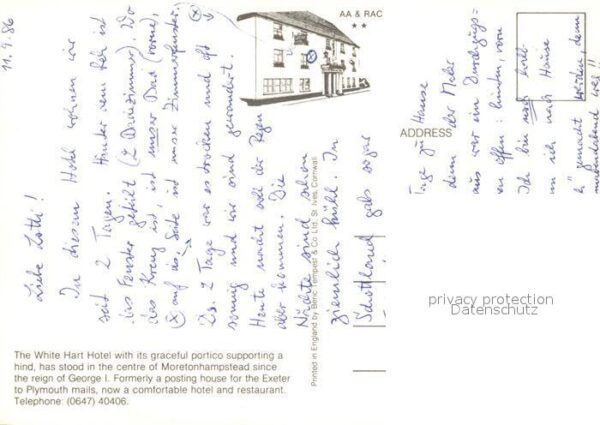 11.9.86
Liebe Lotti!
In diesem Hotel wohnen wir
seit 2 Tagen. Hinter dem ich ist
das Fenster gehört (2 Dreizimmer). Wo
das Kreuz ist, ist unser Dach (vorne,
auf der Seite ist unser Zimmerfenster.
Die 2 Tage war es trocken und oft
sonnig und wir sind gewandert.
Heute macht soll der Regen
aber kommen. Die
Nächte sind schon
ziemlich kühl. In
Schottland gabs sogar
AA & RAC
★★
ADDRESS
Tage zu Hause
denn der
aus war ein Durchgangs=
offen: hinten, vorn
Ich bin noch
ich nach Hause
gemacht werden denn
privacy protection
Datenschutz
Printed in England by Beric Tempest & Co Ltd. St. Ives, Cornwall
The White Hart Hotel with its graceful portico supporting a
hind, has stood in the centre of Moretonhampstead since
the reign of George I. Formerly a posting house for the Exeter
to Plymouth mails, now a comfortable hotel and restaurant.
Telephone: (0647) 40406.